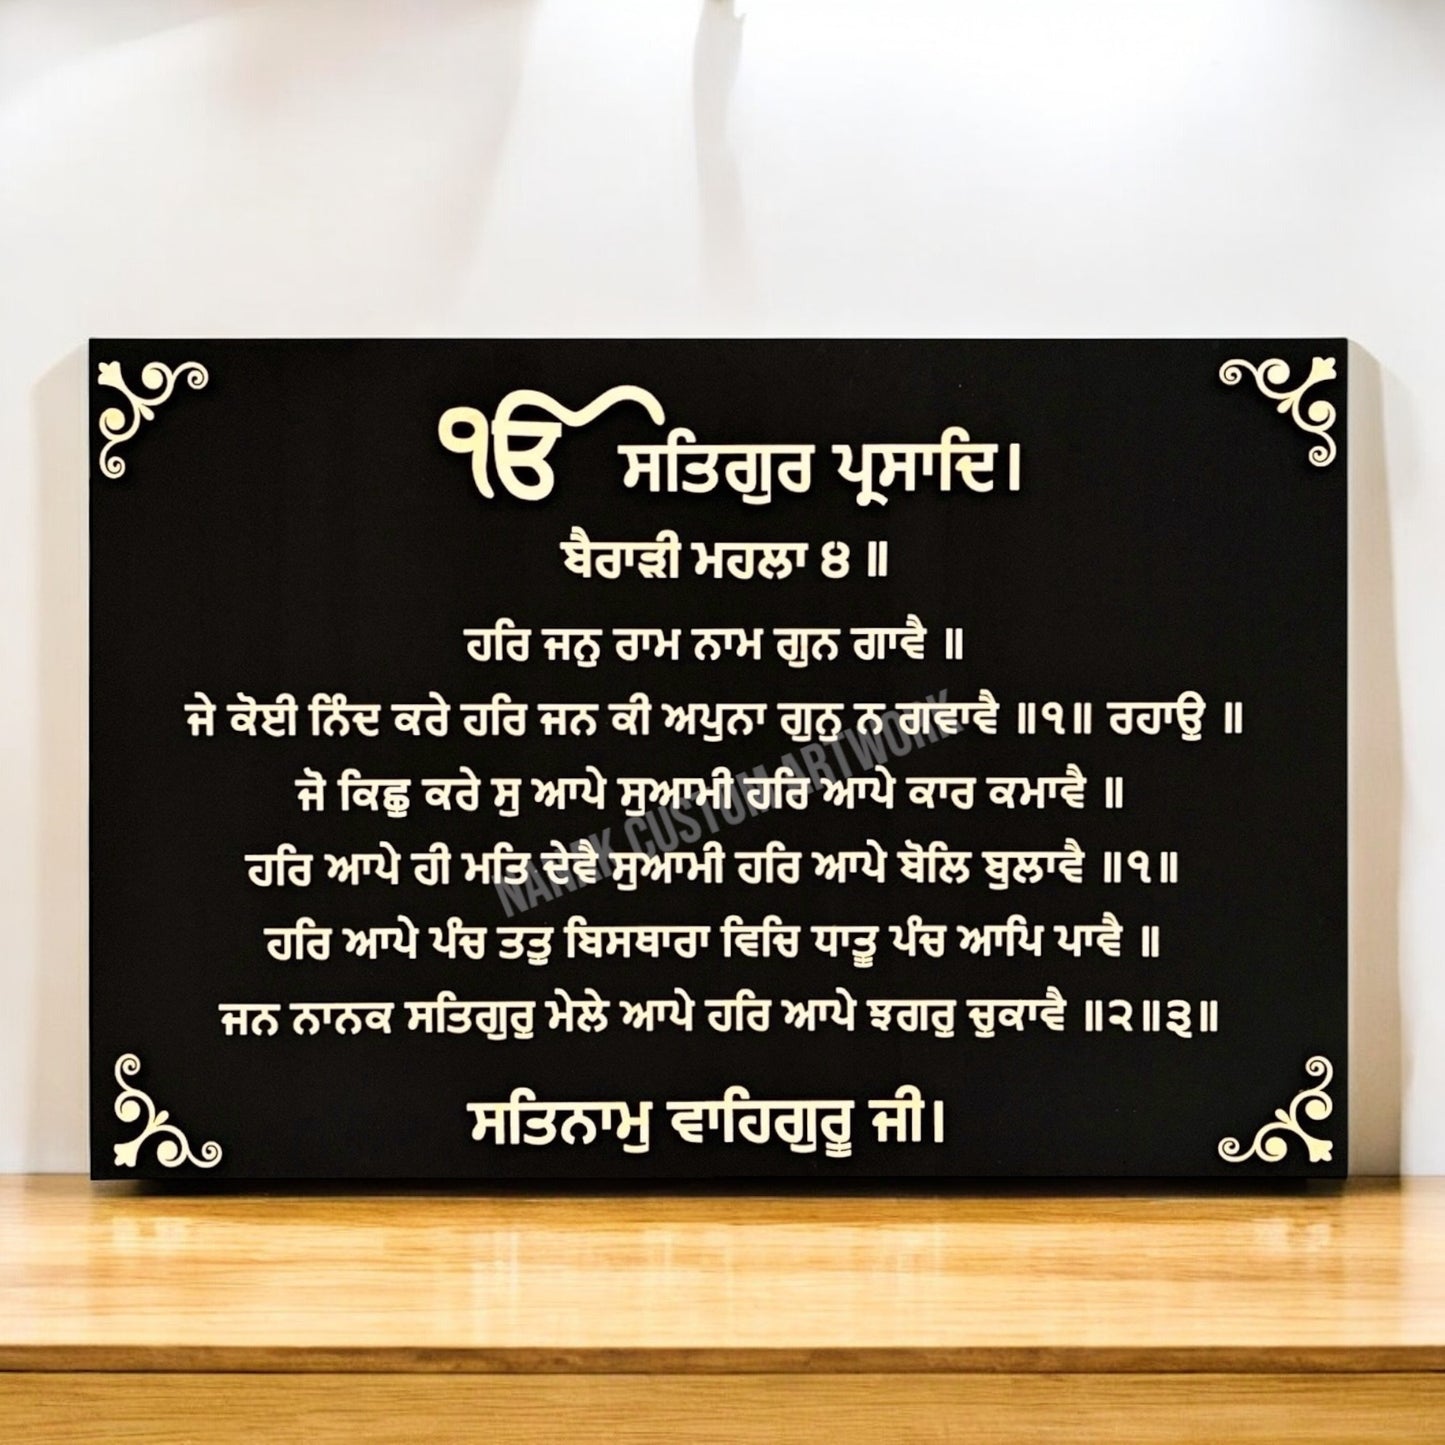 ੴ ਸਤਿਗੁਰ ਪ੍ਰਸਾਦਿ।
ਬੈਰਾੜੀ ਮਹਲਾ ੪ ॥
ਹਰਿ ਜਨੁ ਰਾਮ ਨਾਮ ਗੁਨ ਗਾਵੈ ॥
ਜੇ ਕੋਈ ਨਿੰਦ ਕਰੇ ਹਰਿ ਜਨ ਕੀ ਅਪੁਨਾ ਗੁਨੁ ਨ ਗਵਾਵੈ ॥੧॥ ਰਹਾਉ ॥
ਜੋ ਕਿਛੁ ਕਰੇ ਸੁ ਆਪੇ ਸੁਆਮੀ ਹਰਿ ਆਪੇ ਕਾਰ ਕਮਾਵੈ ॥
ਹਰਿ ਆਪੇ ਹੀ ਮਤਿ ਦੇਵੈ ਸੁਆਮੀ ਹਰਿ ਆਪੇ ਬੋਲਿ ਬੁਲਾਵੈ ॥੧॥
ਹਰਿ ਆਪੇ ਪੰਚ ਤਤੁ ਬਿਸਥਾਰਾ ਵਿਚਿ ਧਾਤੂ ਪੰਚ ਆਪਿ ਪਾਵੈ ॥
ਜਨ ਨਾਨਕ ਸਤਿਗੁਰੁ ਮੇਲੇ ਆਪੇ ਹਰਿ ਆਪੇ ਝਗਰੁ ਚੁਕਾਵੈ ॥੨॥੩॥
ਸਤਿਨਾਮੁ ਵਾਹਿਗੁਰੂ ਜੀ।
NANAK CUSTOM ARTWORK